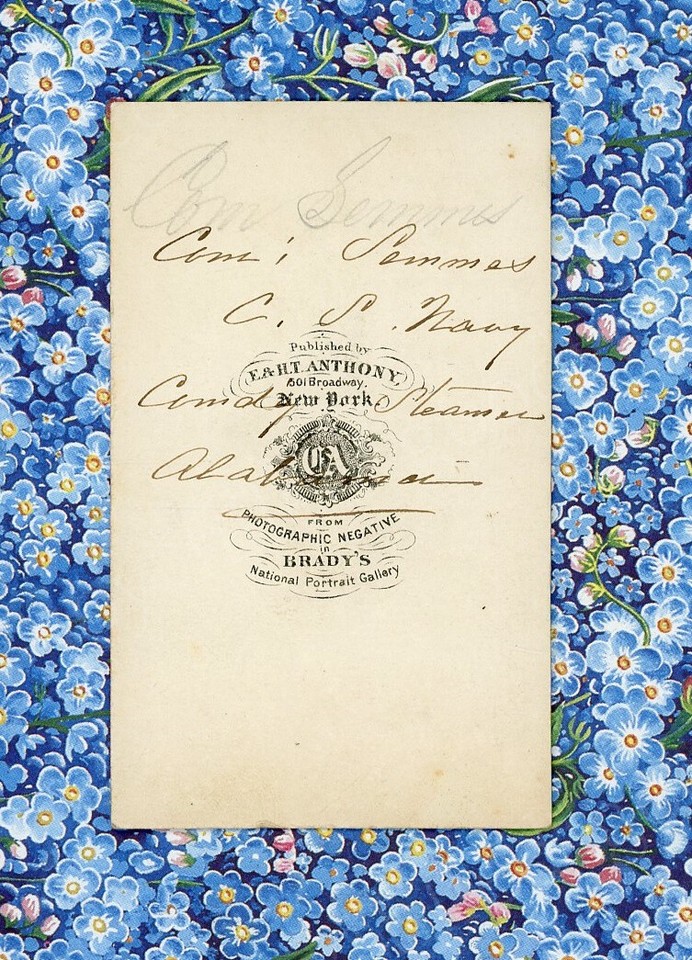 Com Semmes
Com; Semmes
C. S. Navy
Published by
E. & H.T. ANTHONY,
501 Broadway.
New York.
Comdg Steamer
EA
Alabama
FROM
PHOTOGRAPHIC NEGATIVE
in
BRADY'S
National Portrait Gallery